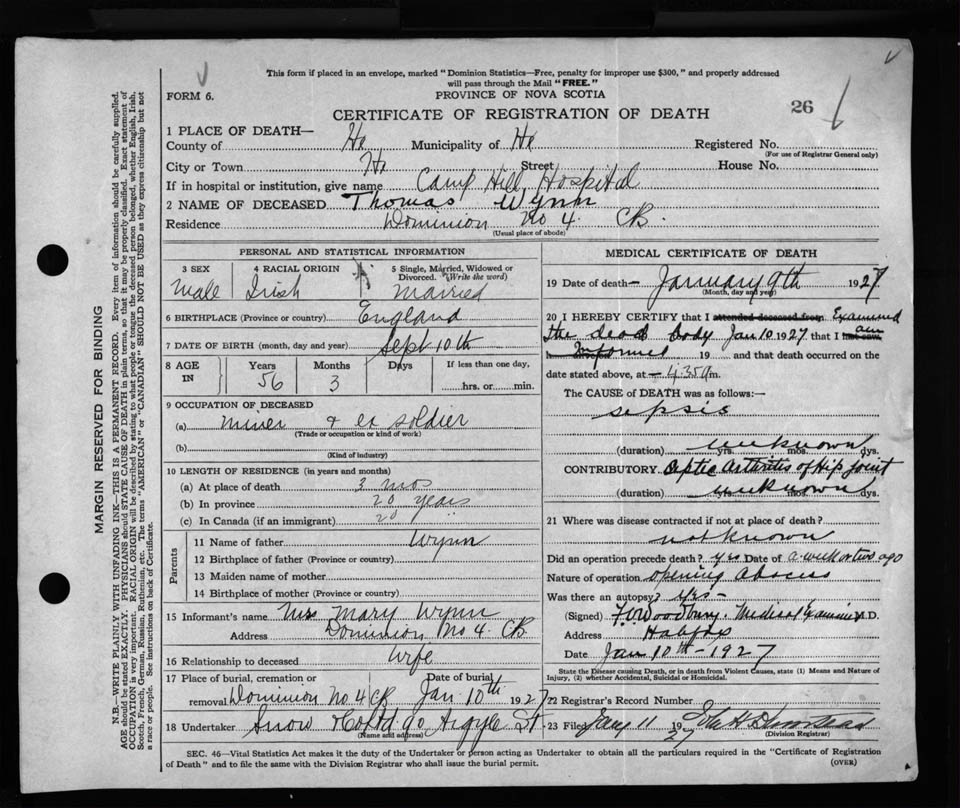 This form if placed in an envelope, marked "Dominion Statistics—Free, penalty for improper use $300," and properly addressed
will pass through the Mail "FREE."
FORM 6.
PROVINCE OF NOVA SCOTIA
26
CERTIFICATE OF REGISTRATION OF DEATH
1 PLACE OF DEATH—
County of Hx Municipality of Hx Registered No.
(For use of Registrar General only)
City or Town Hx Street House No.
If in hospital or institution, give name Camp Hill Hospital
2 NAME OF DECEASED Thomas Wynn
Residence Dominion No 4. CB.
(Usual place of abode)
PERSONAL AND STATISTICAL INFORMATION
3 SEX 4 RACIAL ORIGIN 5 Single, Married, Widowed or
Divorced. (Write the word)
Male Irish Married
6 BIRTHPLACE (Province or country) England
7 DATE OF BIRTH (month, day and year) Sept 10th
8 AGE Years Months Days If less than one day,
IN 56 3 hrs. or min.
9 OCCUPATION OF DECEASED
(a) miner & ex soldier
(Trade or occupation or kind of work)
(b)
(Kind of industry)
10 LENGTH OF RESIDENCE (in years and months)
(a) At place of death 3 mos
(b) In province 20 years
(c) In Canada (if an immigrant) 20
Parents
11 Name of father Wynn
12 Birthplace of father (Province or country)
13 Maiden name of mother
14 Birthplace of mother (Province or country)
15 Informant's name Mrs Mary Wynn
Address Dominion No 4. CB.
16 Relationship to deceased Wife
17 Place of burial, cremation or Date of burial
removal Dominion No 4 CB Jan. 10th 1927
18 Undertaker Snow & Co Ltd 90 Argyle St
(Name and address)
MEDICAL CERTIFICATE OF DEATH
19 Date of death— January 9th 1927
(Month, day and year)
20 I HEREBY CERTIFY that I attended deceased from Examined
the dead body Jan 10 1927 that I am
informed 19 and that death occurred on the
date stated above, at 4.35 a m.
The CAUSE of DEATH was as follows:—
sepsis
unknown
(duration) yrs. mos. dys.
CONTRIBUTORY. Septic arthritis of Hip joint
(duration) unknown mos. dys.
21 Where was disease contracted if not at place of death?
not known
Did an operation precede death? yes Date of a week or two ago
Nature of operation opening abscess
Was there an autopsy? Yes—
(Signed) Woodbury. Medical Examiner M.D.
Address Halifax
Date Jan 10th—1927
State the Disease causing Death, or in death from Violent Causes, state (1) Means and Nature of
Injury, (2) whether Accidental, Suicidal or Homicidal.
22 Registrar's Record Number
23 Filed Jany 11 1927
(Division Registrar)
SEC. 46—Vital Statistics Act makes it the duty of the Undertaker or person acting as Undertaker to obtain all the particulars required in the "Certificate of Registration
of Death" and to file the same with the Division Registrar who shall issue the burial permit.
(OVER)
MARGIN RESERVED FOR BINDING
N.B.—WRITE PLAINLY WITH UNFADING INK—THIS IS A PERMANENT RECORD. Every item of information should be carefully supplied.
AGE should be stated EXACTLY. PHYSICIANS should STATE CAUSE OF DEATH in plain terms, so that it may be properly classified. Exact statement of
OCCUPATION is very important. RACIAL ORIGIN will be described by stating to what people or tongue the deceased person belonged, whether English, Irish,
Scotch, French, German, Russian, Ruthenian, etc. The terms "AMERICAN" or "CANADIAN" SHOULD NOT BE USED as they express citizenship but not
a race or people. See instructions on back of Certificate.